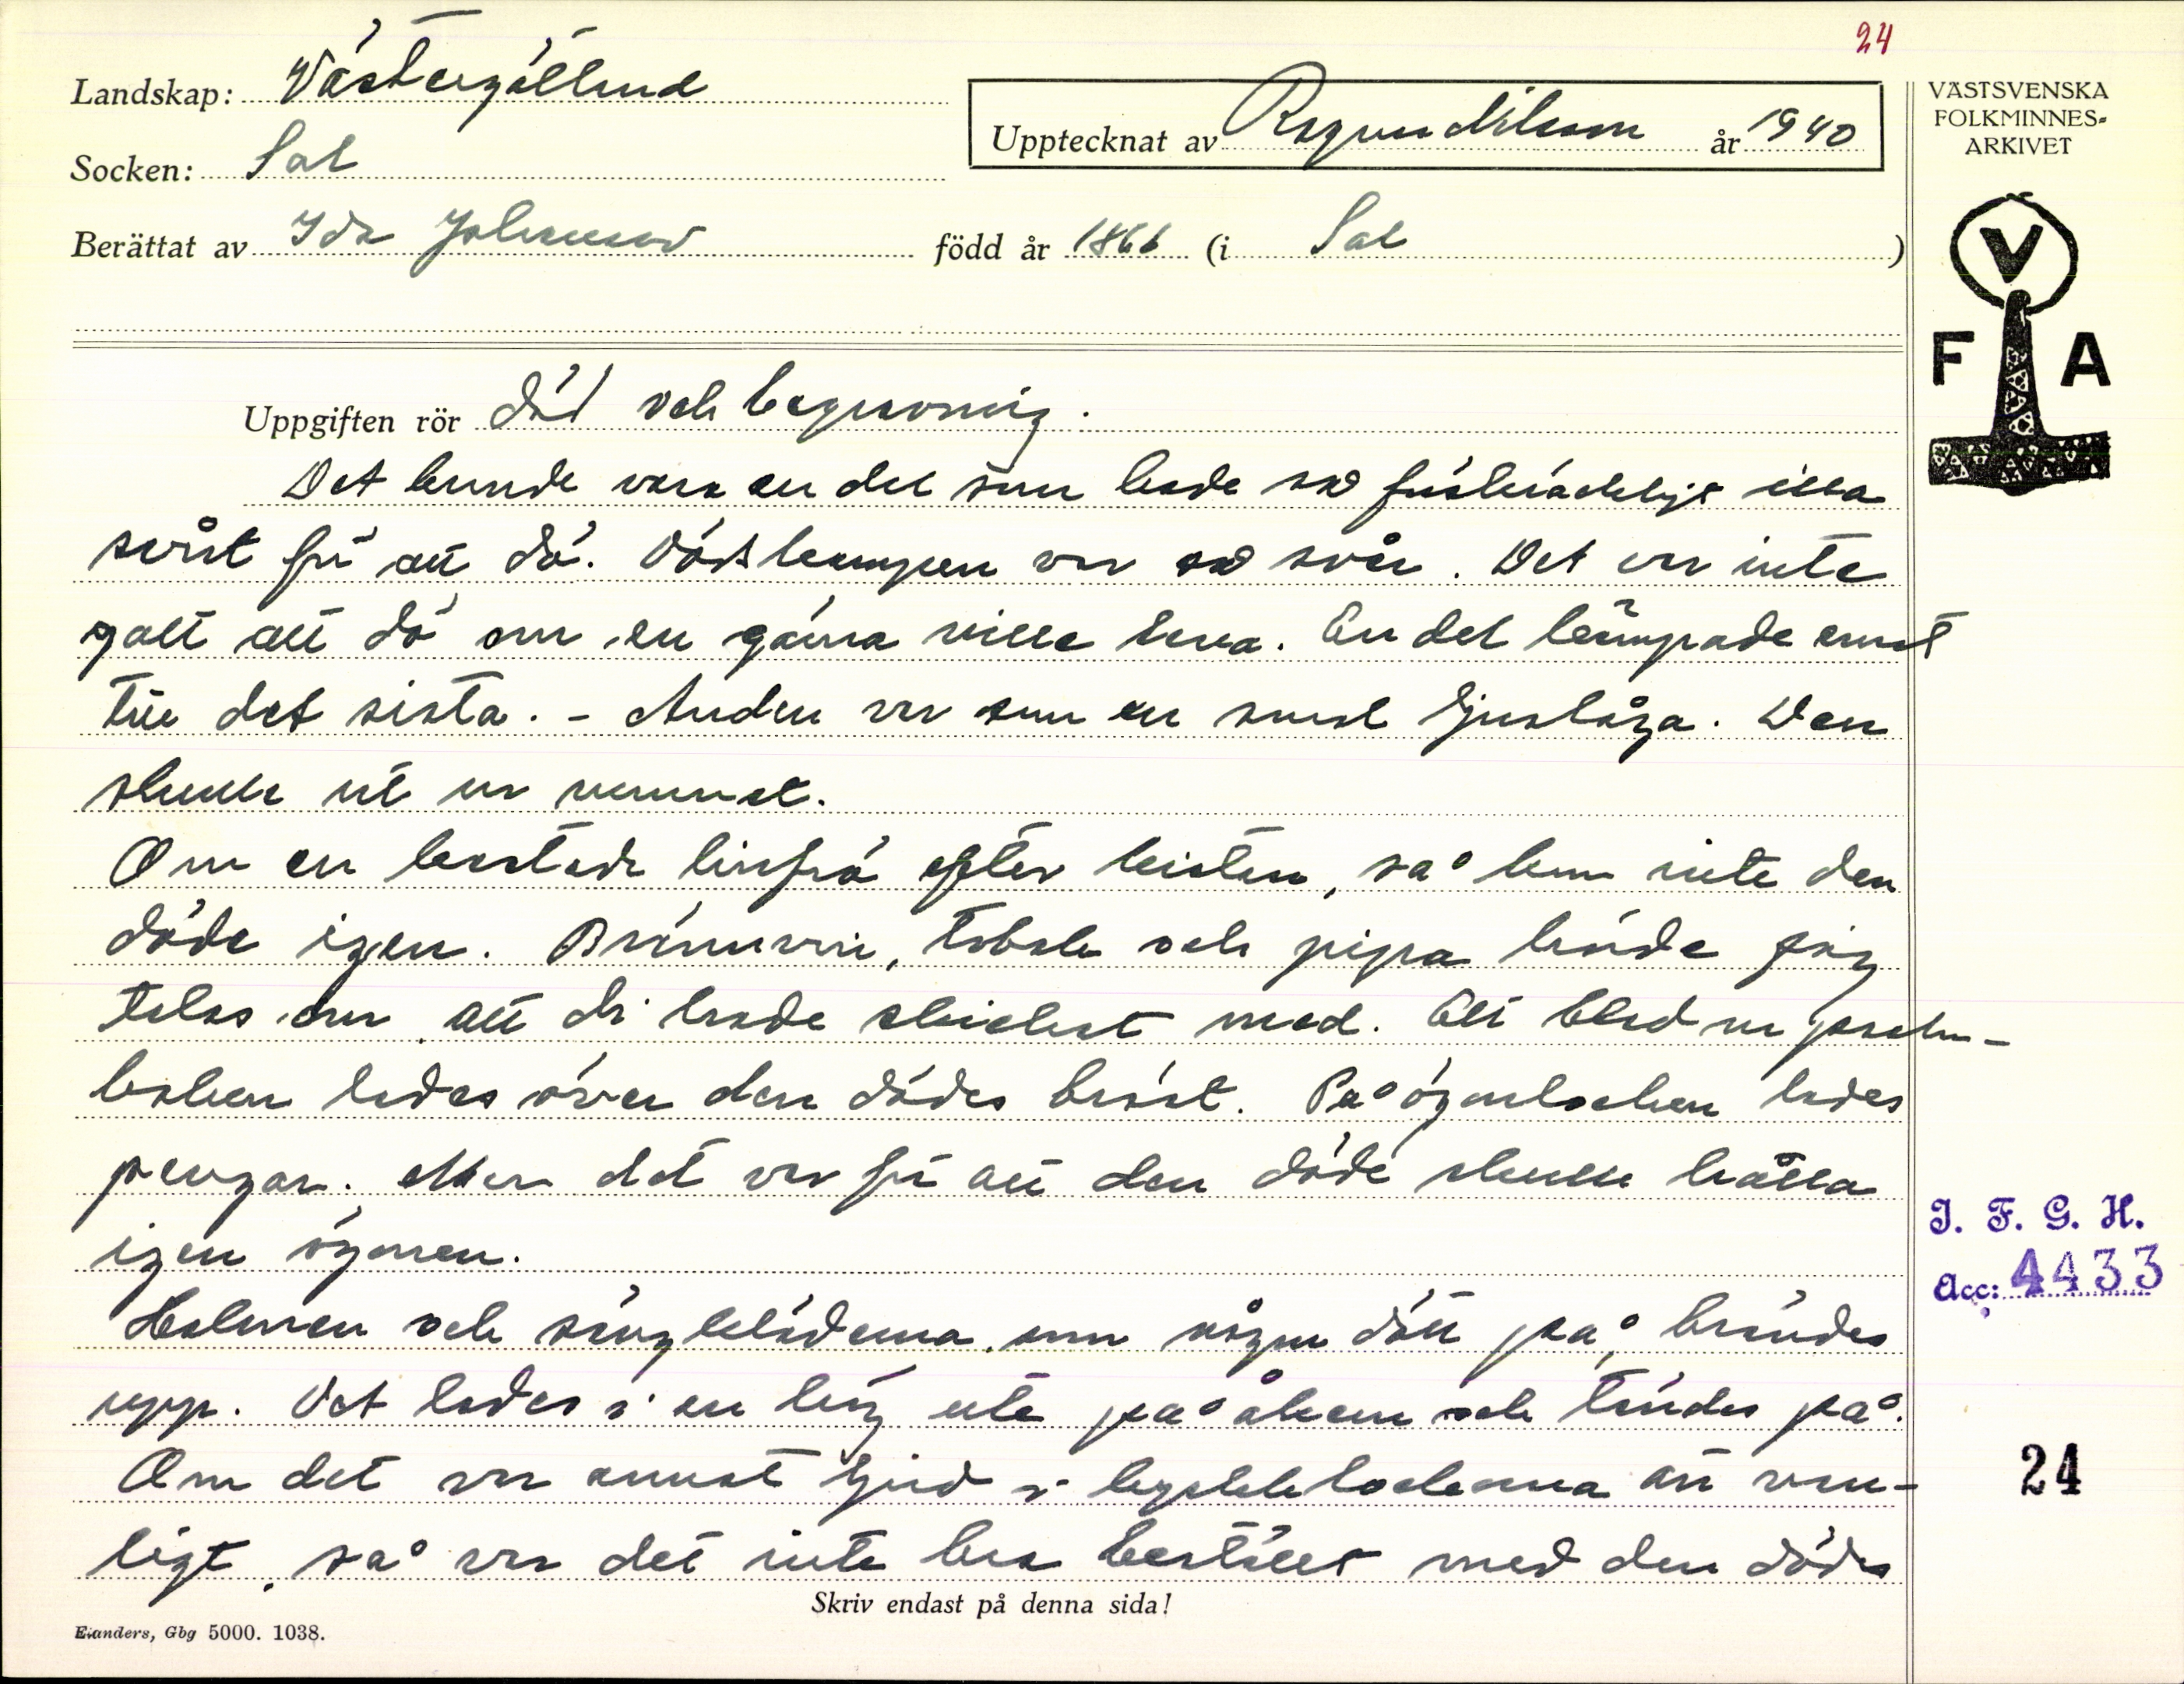 24
Landskap: Västergötland
Upptecknat av Ragnar Nilsson år 1940
VÄSTSVENSKA
FOLKMINNES-
ARKIVET
Socken: Sal
Berättat av Ida Johansson född år 1866 (i Sal)
V
F A
Uppgiften rör död och begravning.
Det kunde vara en del som hade so förskräckligt illa
svårt för att dö. Dödskampen var so svår. Det var inte
gott att dö om en gärna ville leva. En del kämpade emot
till det sista. - Anden var som en smal ljuslåga. Den
skulle ut ur rummet.
Om en kastade linfrö efter kistan, så kom inte den
döde igen. Brännvin, tobak och pipa hörde jag
talas om att di hade skickat med. Ett blad ur psalm-
boken lades över den dödes bröst. På ögonlocken lades
pengar. Men det var för att den döde skulle hålla
igen ögonen.
Halmen och sängkläderna, som någon dött på, brändes
upp. Det lades i en hög ute på åkern och tändes på.
Om det var annat ljud i kyrkklockorna än van-
ligt, så var det inte bra beställt med den döde
Skriv endast på denna sida!
I. F. G. H.
Acc: 4433
24
Elanders, Gbg 5000. 1038.